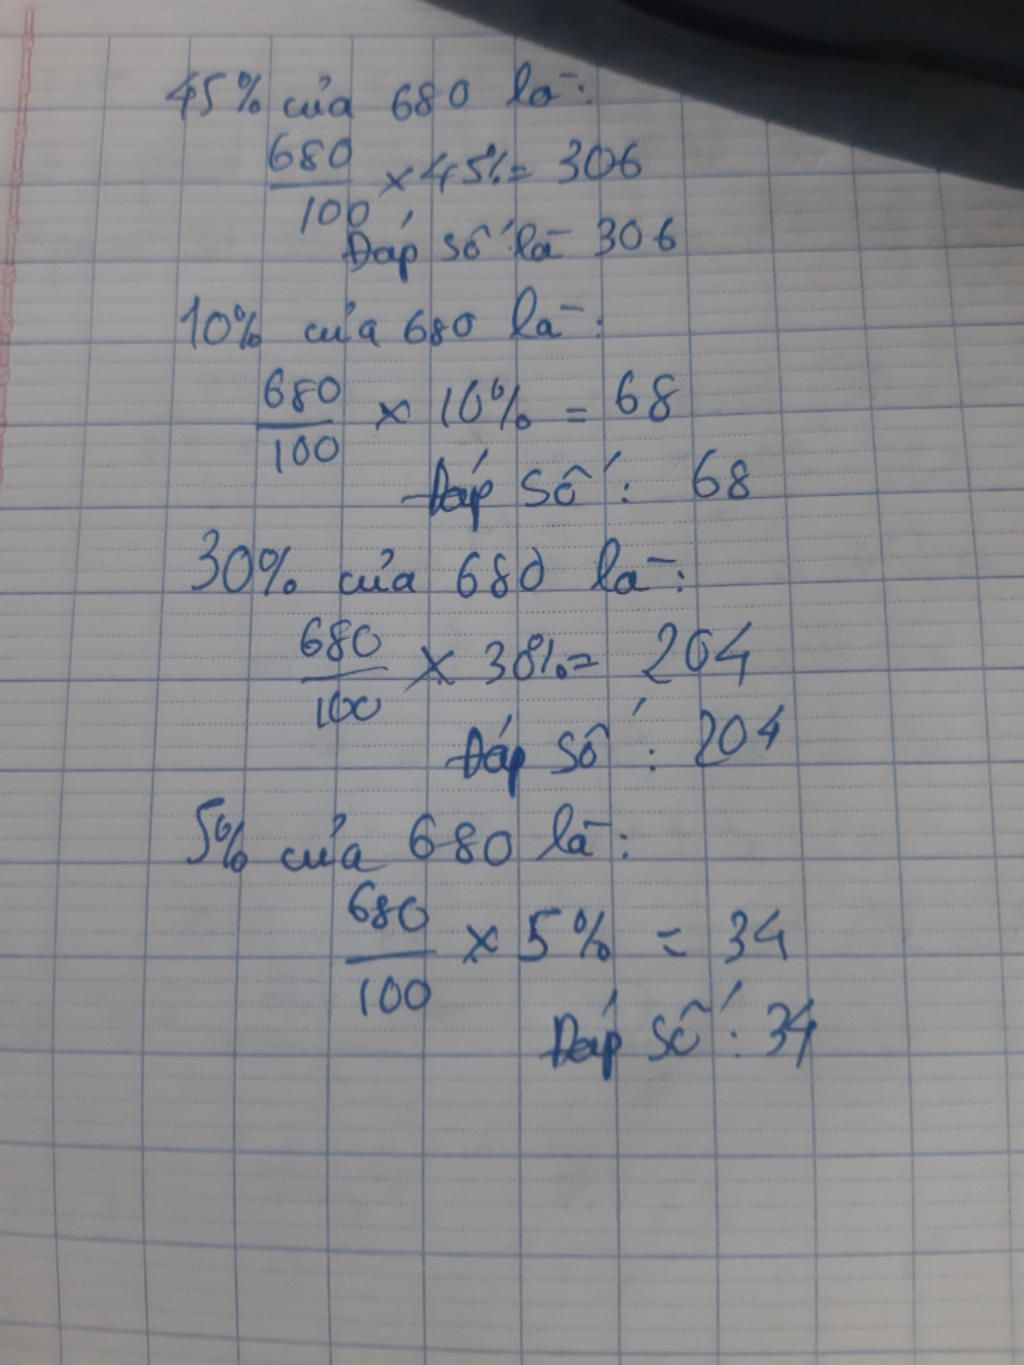 45% của 680 là:
680
100
× 45% = 306
Đáp số là 306
10% của 680 là:
680
100
× 10% = 68
Đáp số: 68
30% của 680 là:
680
100
× 30% = 204
Đáp số: 204
5% của 680 là:
680
100
× 5% = 34
Đáp số: 34